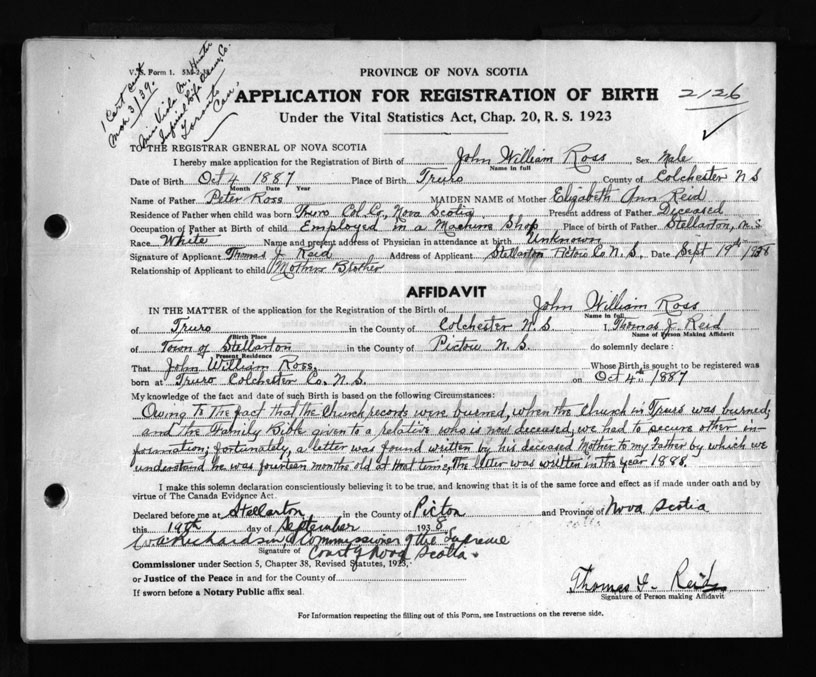 V.S. Form 1.
1 Cert
Mar 3/39.
Miss Viola M. Hunter
Imperial Life Co.
Toronto
Can.
PROVINCE OF NOVA SCOTIA
APPLICATION FOR REGISTRATION OF BIRTH 2126
Under the Vital Statistics Act, Chap. 20, R. S. 1923
TO THE REGISTRAR GENERAL OF NOVA SCOTIA
I hereby make application for the Registration of Birth of John William Ross Sex Male
Name in full
Date of Birth Oct 4 1887 Place of Birth Truro County of Colchester N S
Month Date Year
Name of Father Peter Ross MAIDEN NAME of Mother Elizabeth Ann Reid
Residence of Father when child was born Truro Col. Co., Nova Scotia Present address of Father Deceased
Occupation of Father at Birth of child Employed in a Machine Shop Place of birth of Father Stellarton, N.S
Race White Name and present address of Physician in attendance at birth Unknown
Signature of Applicant Thomas J. Reid Address of Applicant Stellarton Pictou Co N.S. Date Sept 19th 1938
Relationship of Applicant to child Mothers Brother
AFFIDAVIT
IN THE MATTER of the application for the Registration of Birth of John William Ross
Name in full
of Truro in the County of Colchester N.S I, Thomas J. Reid
Birth Place Name of Person Making Affidavit
of Town of Stellarton in the County of Pictou N.S. do solemnly declare:
Present Residence
That John William Ross. Whose Birth is sought to be registered was
born at Truro Colchester Co. N.S. on Oct 4th 1887
My knowledge of the fact and date of such Birth is based on the following Circumstances:
Owing to the fact that the Church records were burned, when the Church in Truro was burned,
and the Family Bible given to a relative who is now deceased, we had to secure other in-
formation; fortunately, a letter was found written by his deceased Mother to my Father by which we
understand he was fourteen months old at that time, the letter was written in the year 1888.
I make this solemn declaration conscientiously believing it to be true, and knowing that it is of the same force and effect as if made under oath and by
virtue of The Canada Evidence Act.
Declared before me at Stellarton in the County of Pictou and Province of Nova Scotia
this 19th day of September 1938
Richardson, A Commissioner of the Supreme
Signature of Court of Nova Scotia.
Commissioner under Section 5, Chapter 38, Revised Statutes, 1923,
or Justice of the Peace in and for the County of
If sworn before a Notary Public affix seal.
Thomas J. Reid
Signature of Person making Affidavit
For Information respecting the filling out of this Form, see Instructions on the reverse side.